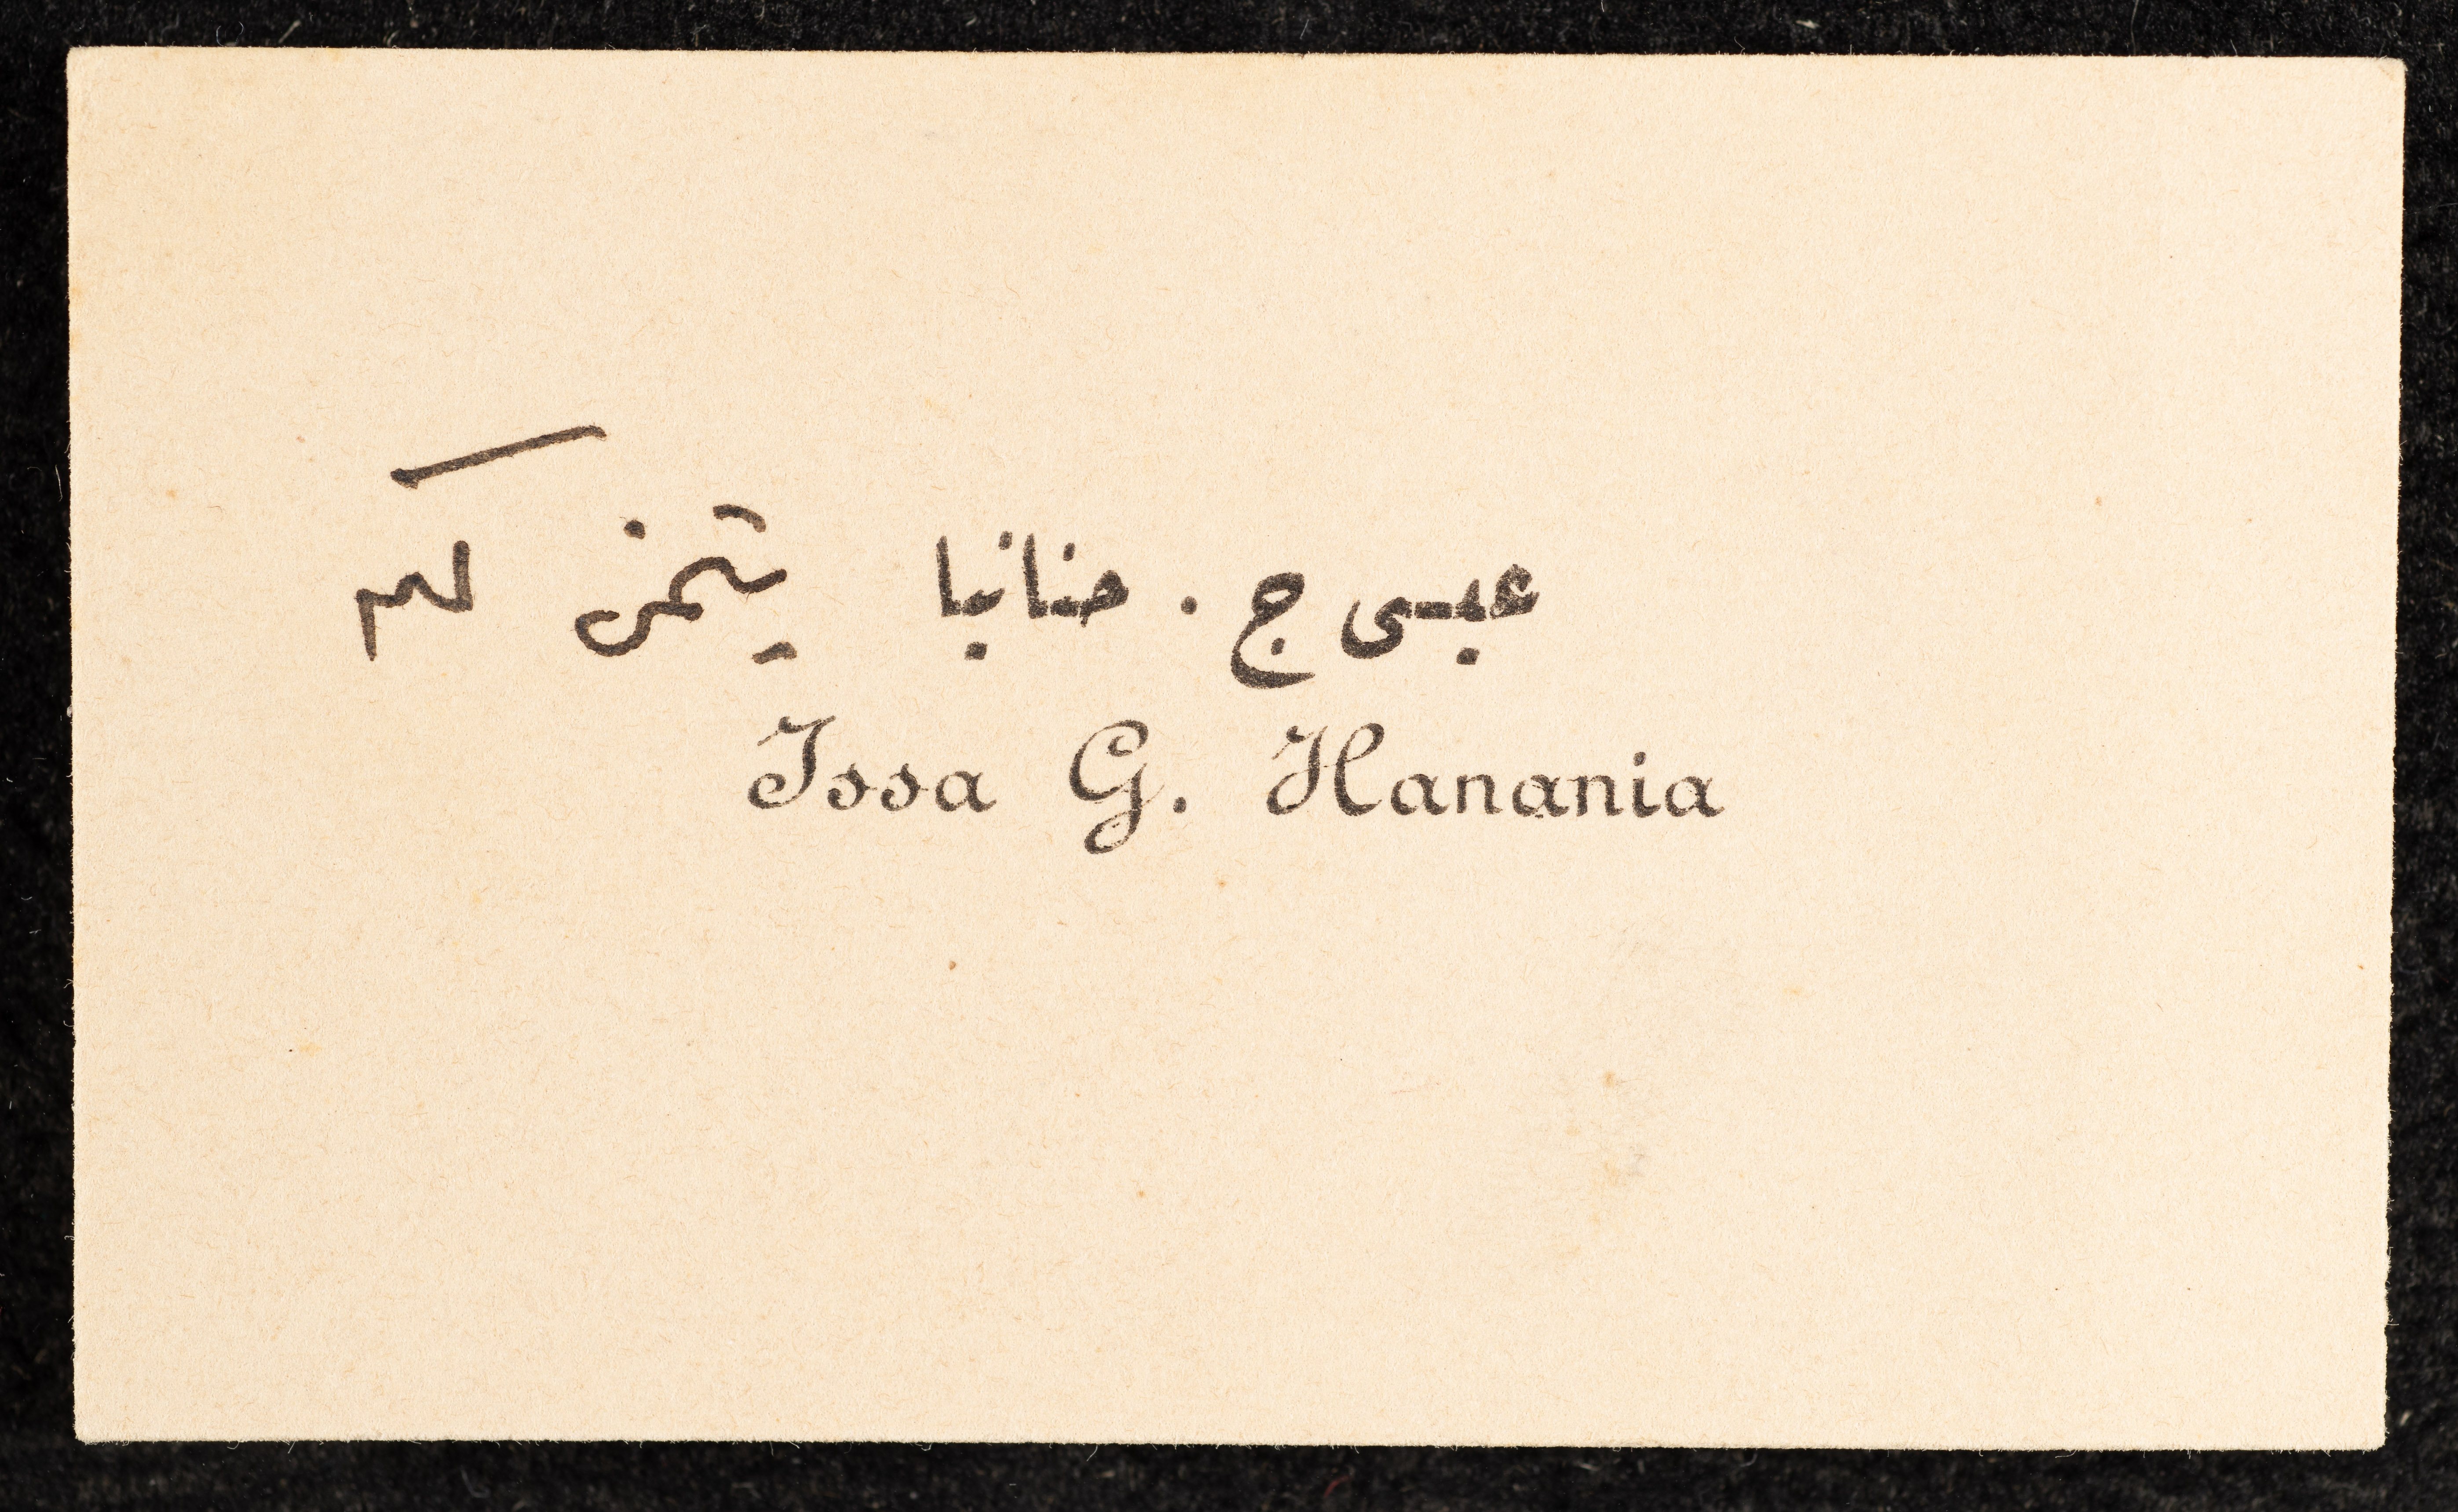 عيسى ج. حنانيا يتمنى لكم
Issa G. Hanania